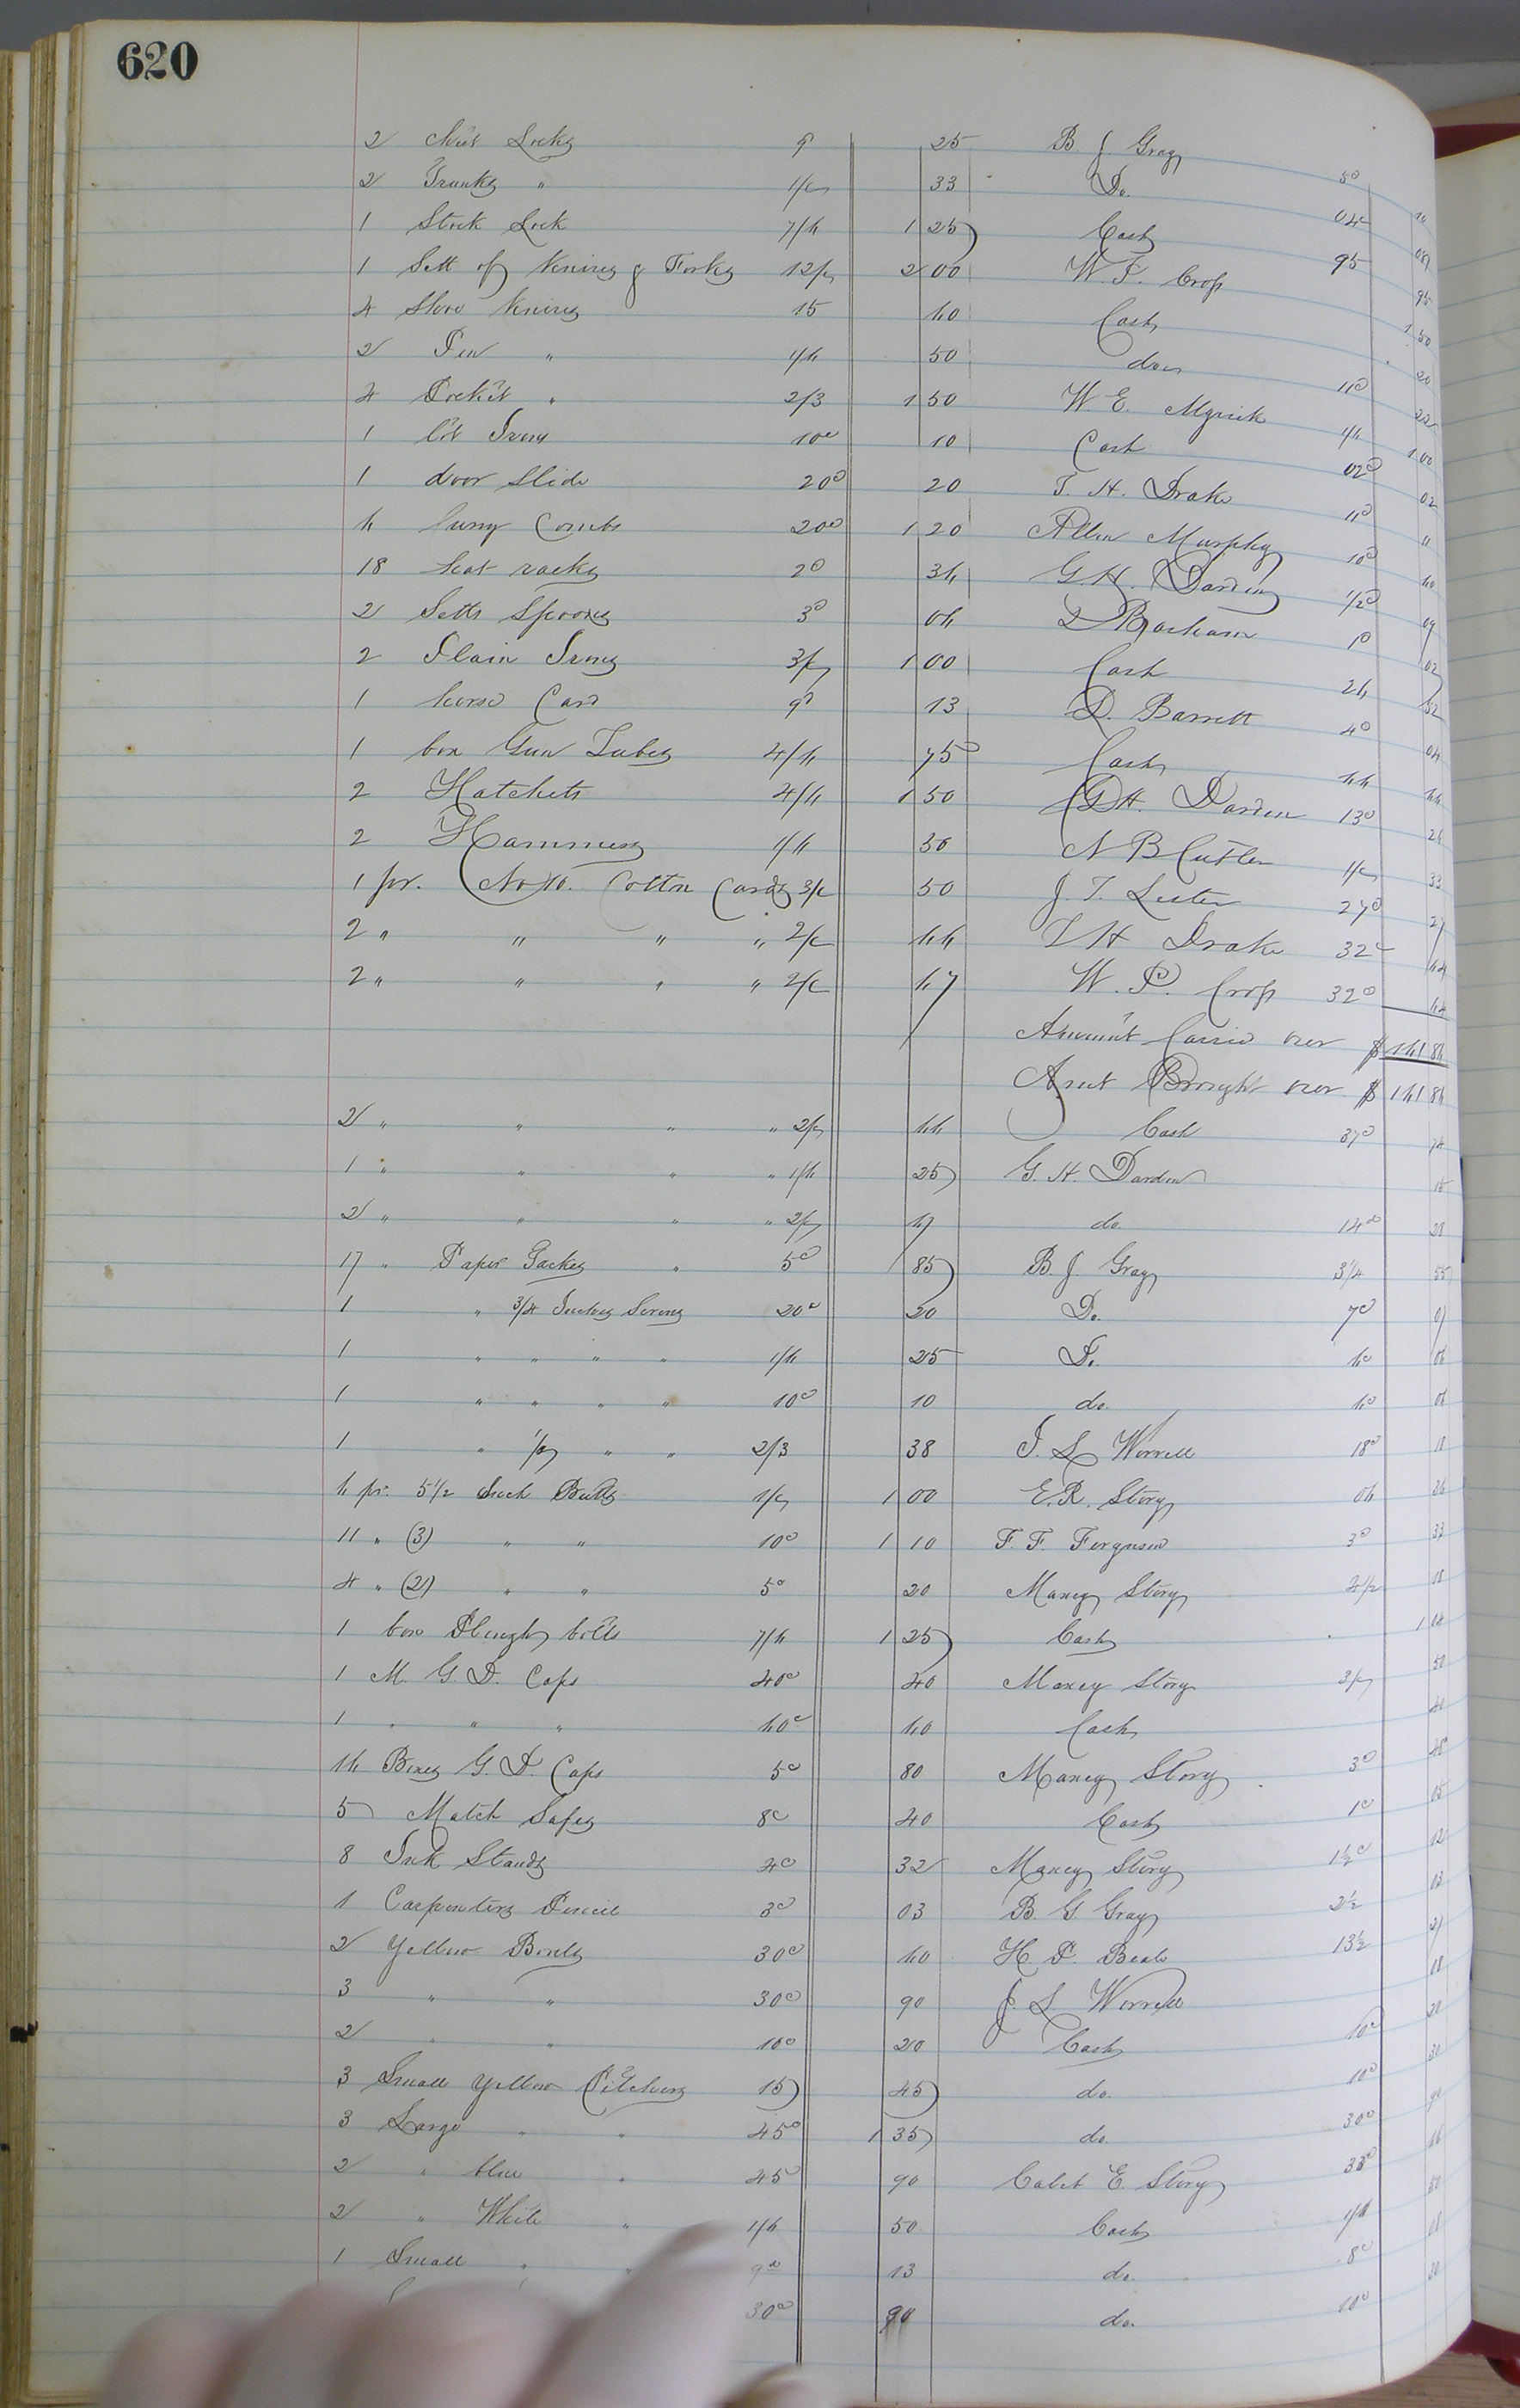 620
2 Chest Locks 9 25 B. J. Gray 5c 10
2 Trunks " 1/c 33 Do. 04c 08
1 Stock Lock 7/6 1 25 Cash 95 95
1 Sett of Knives & Forks 12/ 2 00 W. P. Cross 1 50
4 Shoe Knives 15 60 Cash 20
2 Pen " 1/6 50 do 11c 22
4 Pocket " 2/3 1 50 W. E. Myrick 1/6 1 00
1 lot Irons 10c 10 Cash 02c 02
1 door Slide 20c 20 T. H. Drake 11c 11
6 Curry Combs 20c 1 20 Allen Murphy 10c 60
18 hat racks 2c 36 G. H. Darden 1/2c 09
2 Setts Spoons 3c 06 Barham 1c 02
2 Plain Irons 3/ 1 00 Cash 26 52
1 horse Card 9d 13 D. Barrett 4c 04
1 box Gun Tubes 4/6 75 Cash 66 66
2 Hatchets 4/6 1 50 G. H. Darden 13c 26
2 Hammers 1/6 50 N B Cutler 1/c 33
1 pr. No 10. Cotton Cards 3/c 50 J. T. Lester 27c 27
2 " " " " 2/c 66 T H Drake 32c 64
2 " " " " 2/c 67 W. P. Cross 32c 64
Amount Carried over $ 161 86
Amt Brought over $ 161 86
2 " " " " 2/ 66 Cash 37c 74
1 " " " " 1/6 25 G. H. Darden 15
2 " " " " 2/ 67 do 14c 28
17 " Paper Tacks " 5c 85 B. J. Gray 3 1/4 55
1 " 3/4 Inches Screws 20c 20 Do. 7c 07
1 " " " " 1/6 25 D. 6c 06
1 " " " " 10c 10 do. 6c 06
1 " " " 2/3 38 J. L Worrell 18c 18
6 pr. 5 1/2 Inch Butts 1/ 1 00 E. R. Story 06 36
11 " (3) " " 10c 1 10 F. F. Ferguson 3c 33
4 " (2) " " 5c 20 Maney Story 4 1/2 18
1 box Plough bolts 7/6 1 25 Cash 1 14
1 M. G. D. Caps 40c 40 Maney Story 3/ 50
1 " " " 60c 60 Cash 40
16 Boxes G. D. Caps 5c 80 Maney Story 3c 48
5 Match Safes 8c 40 Cash 1c 05
8 Ink Stands 4c 32 Maney Story 1 1/2c 12
1 Carpenters Pencil 3c 03 B. G. Gray 2 1/2 03
2 Yellow Bowls 30c 60 H. P. Beale 13 1/2 27
3 " " 30c 90 J. L. Worrell
2 " " 10c 20 Cash 10c 20
3 Small Yellow Pitchers 15 45 do. 10c 30
3 Large " " 45c 1 35 do. 30c 90
2 " blue " 45 90 Calet E. Story 33c 66
2 " White " 1/6 50 Cash 1/6 50
1 Small " " 9d 13 do. 8c 08
30c 90 do. 10c 20